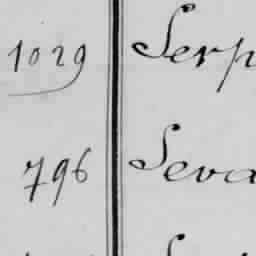 1029 Serp
796 Seva